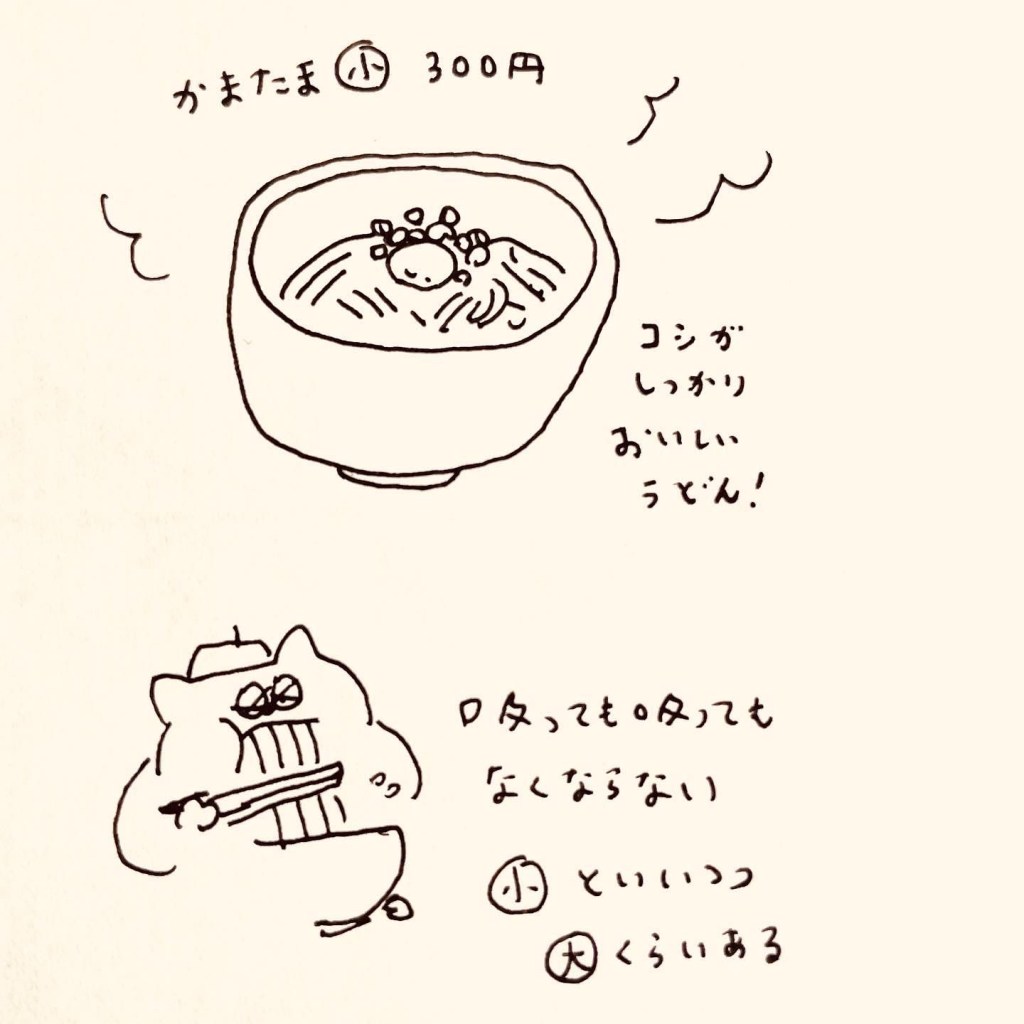 かまたま ㊙小 300円
コシが
しっかり
おいしい
うどん!
吸っても吸っても
なくならない
小 といいつつ
大 くらいある